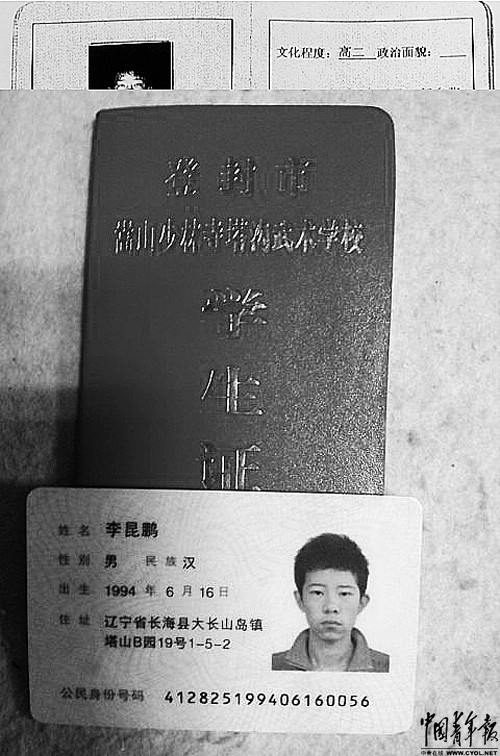 文化程度：高二 政治面貌：
登封市
嵩山少林寺塔沟武术学校
学
生
证
姓名 李昆鹏
性别 男 民族 汉
出生 1994 年 6 月 16 日
住址 辽宁省长海县大长山岛镇
塔山B园19号1-5-2
公民身份号码 412825199406160056
中国青年报
中青在线 WWW.CYOL.NET